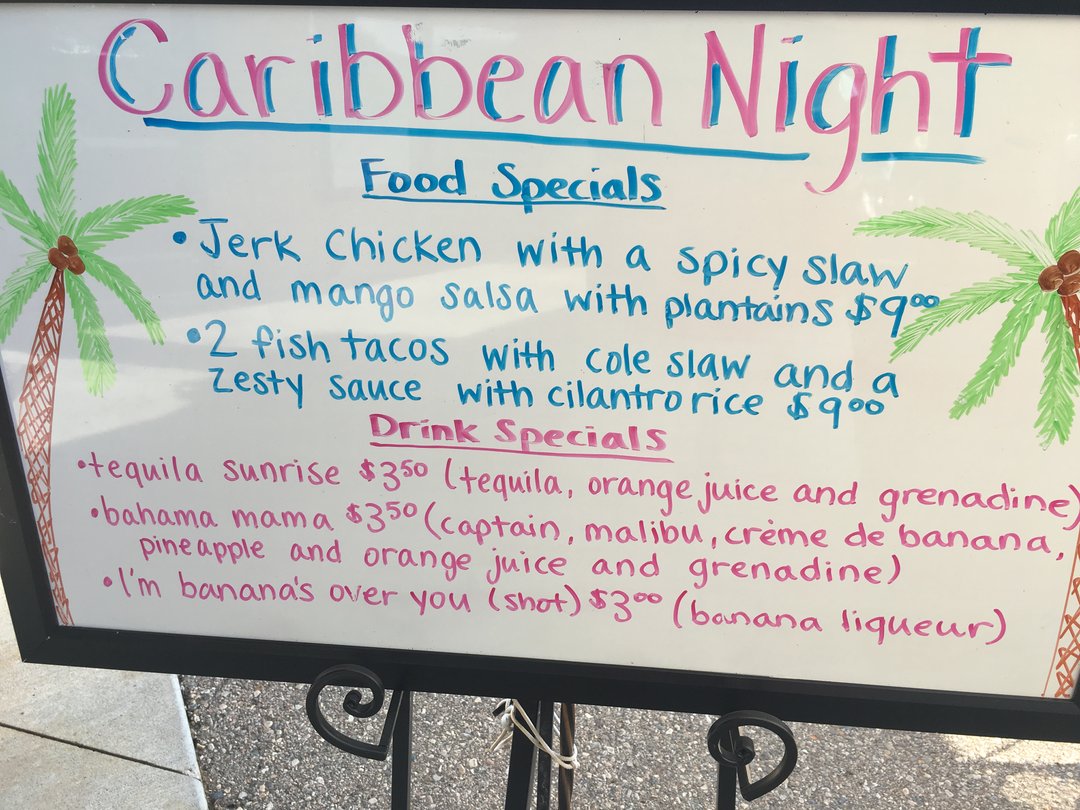 Caribbean Night
Food Specials
• Jerk Chicken with a spicy slaw
and mango salsa with plantains $900
• 2 fish tacos with cole slaw and a
zesty sauce with cilantro rice $900
Drink Specials
• tequila sunrise $350 (tequila, orange juice and grenadine)
• bahama mama $350 (captain, malibu, crème de banana,
pineapple and orange juice and grenadine)
• I'm banana's over you (shot) $300 (banana liqueur)